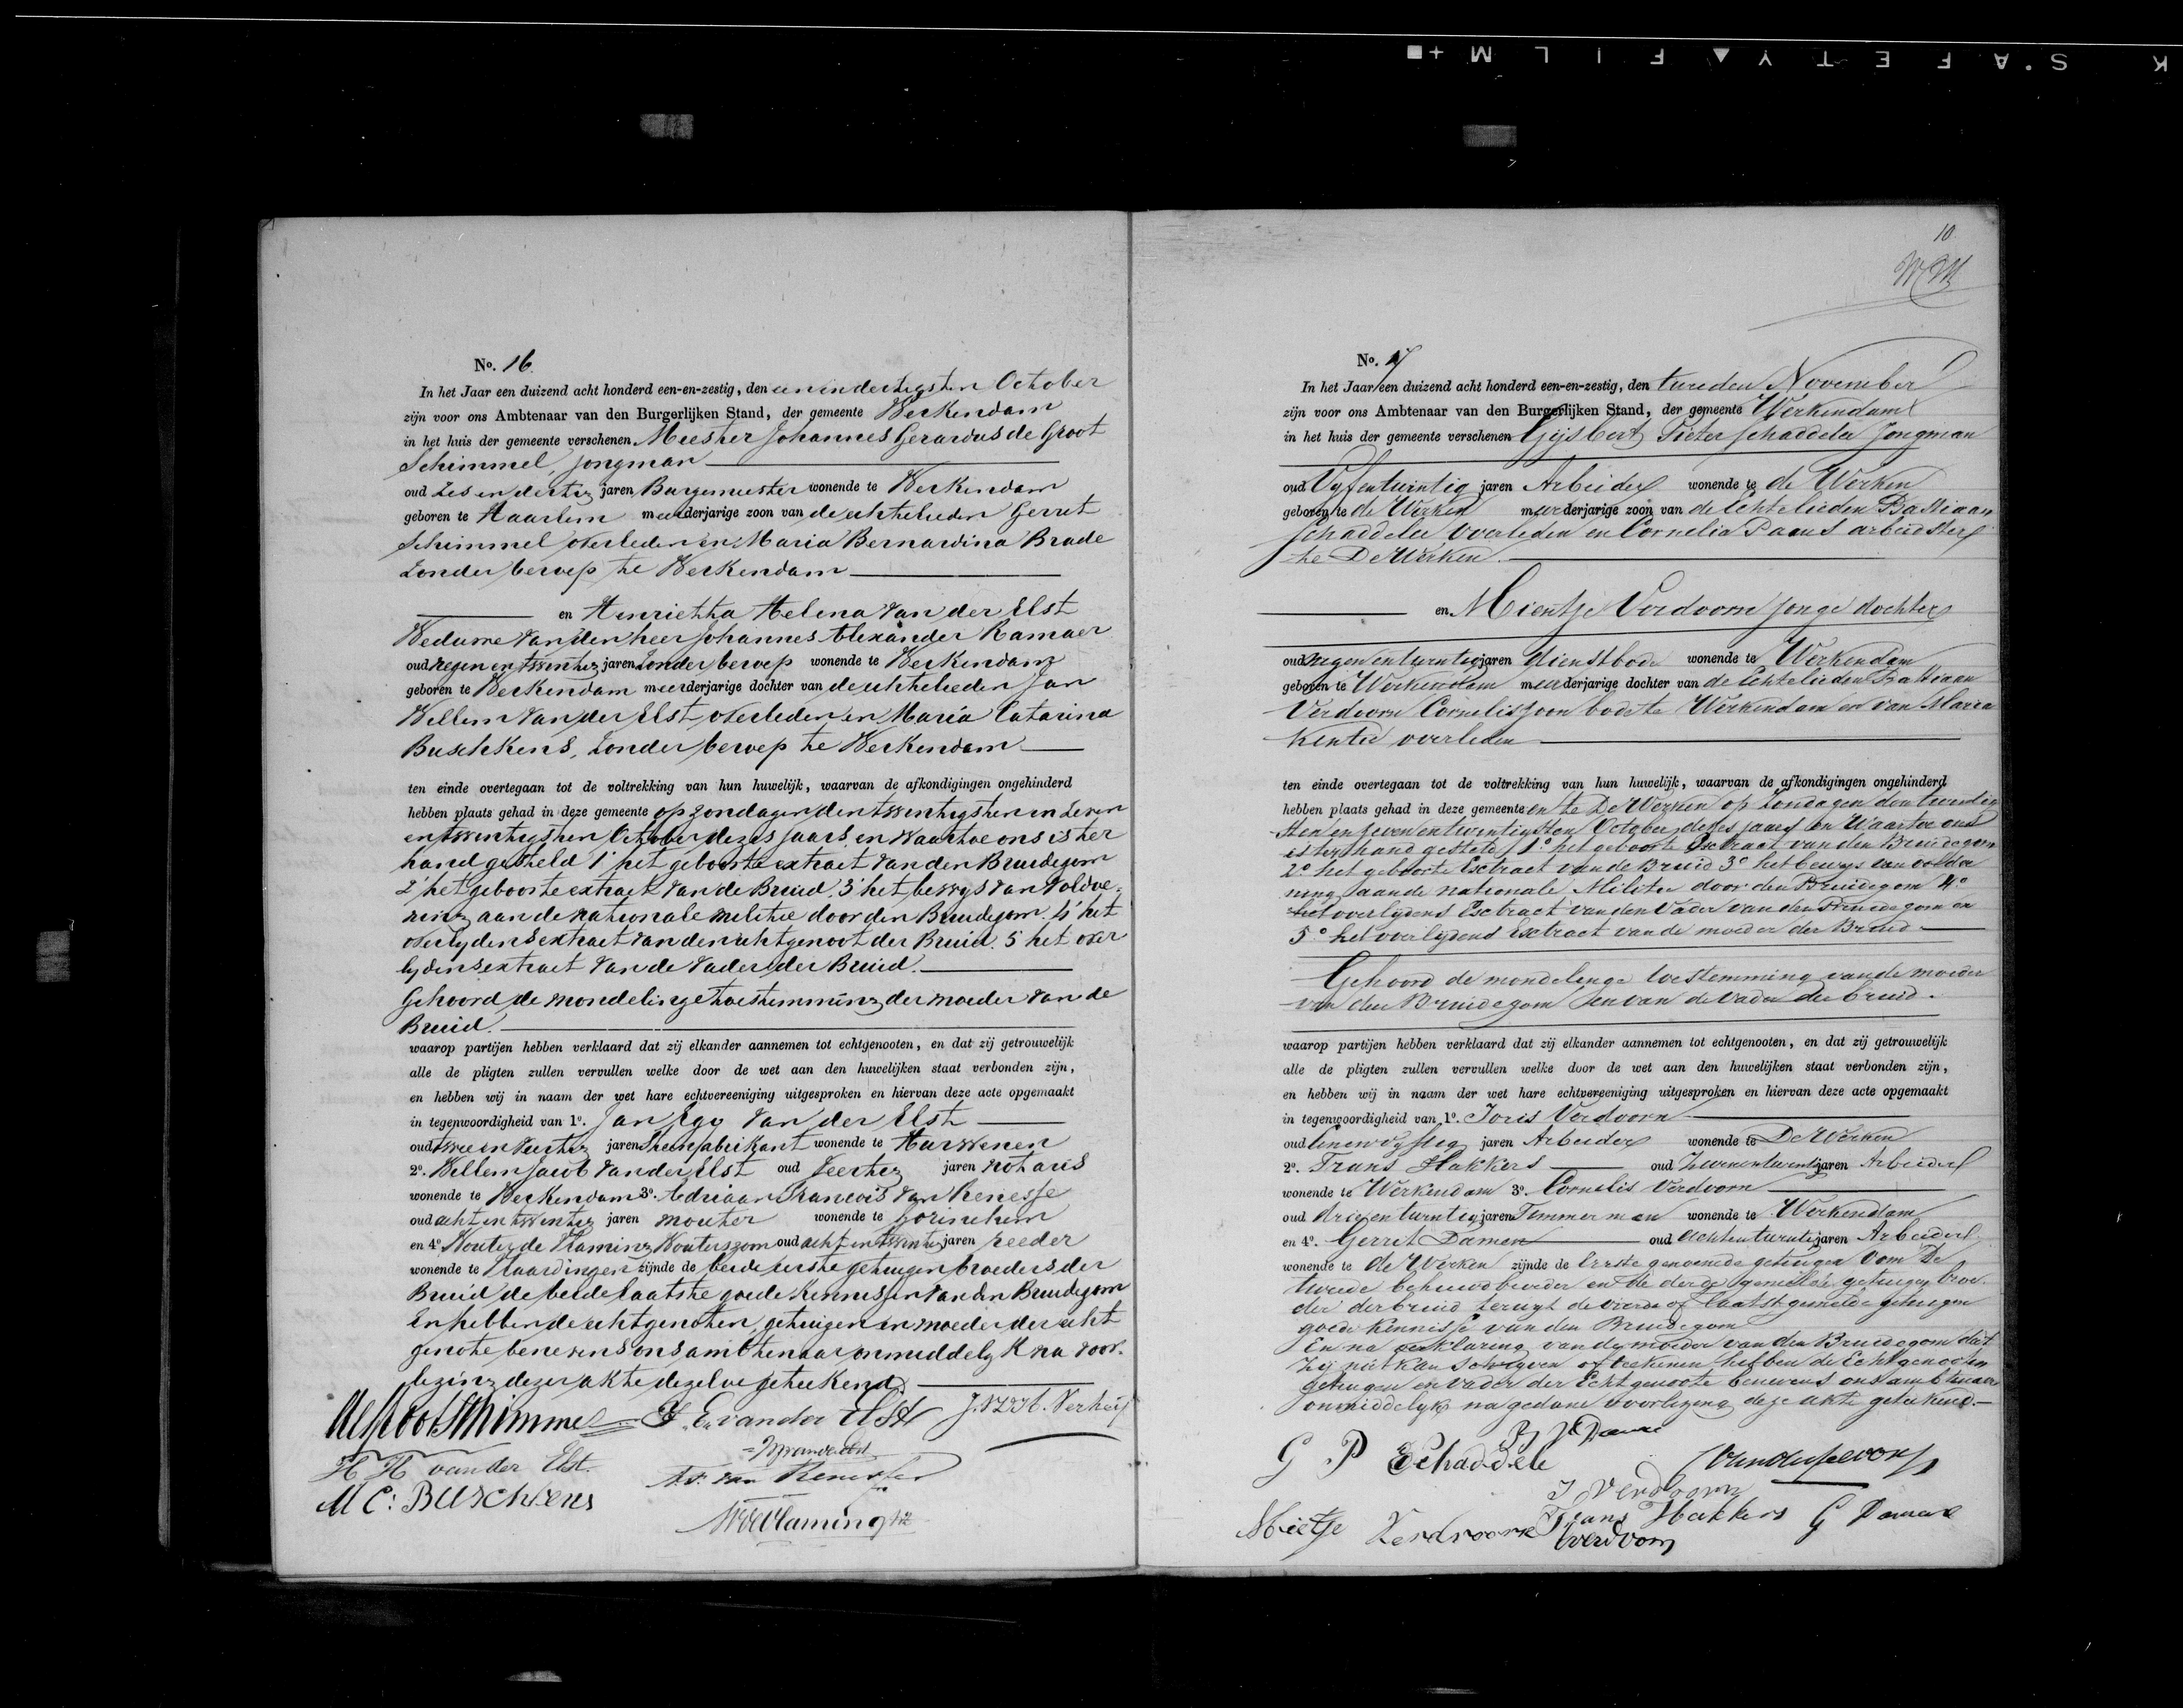 K S.A F E T Y ▲ F I L M +■
No. 16.
In het Jaar een duizend acht honderd een-en-zestig, den eenendertigsten October
zijn voor ons Ambtenaar van den Burgerlijken Stand, der gemeente Werkendam
in het huis der gemeente verschenen Meester Johannes Gerardus de Groot
Schimmel, jongman
oud Zes en dertig jaren Burgemeester wonende te Werkendam
geboren te Haarlem meerderjarige zoon van de echtelieden Gerrit
Schimmel overleden en Maria Bernardina Brade
Zonder beroep te Werkendam
en Henrietta Helena van der Elst
Weduwe van den heer Johannes Alexander Ramaer
oud negen en twintig jaren Zonder beroep wonende te Werkendam
geboren te Werkendam meerderjarige dochter van de echtelieden Jan
Willem van der Elst overleden en Maria Catarina
Buschkens, Zonder beroep te Werkendam
ten einde overtegaan tot de voltrekking van hun huwelijk, waarvan de afkondigingen ongehinderd
hebben plaats gehad in deze gemeente op zondagen den twintigsten en Zeven
en twintigsten October dezes jaars, en waartoe ons is ter
hand gesteld 1° het geboorte extract van den Bruidegom
2° het geboorte extract van de Bruid 3° het bewys van voldoe-
ning aan de nationale militie door den Bruidegom. 4° het
overlydens extract van den echtgenoot der Bruid. 5 het over
lydens extract van de vader der Bruid.
Gehoord de mondelinge toestemming der moeder van de
Bruid.
waarop partijen hebben verklaard dat zij elkander aannemen tot echtgenooten, en dat zij getrouwelijk
alle de pligten zullen vervullen welke door de wet aan den huwelijken staat verbonden zijn,
en hebben wij in naam der wet hare echtvereeniging uitgesproken en hiervan deze acte opgemaakt
in tegenwoordigheid van 1°. Jan Egy van der Elst
oud twee en veertig jaren Steenfabrikant wonende te Hurwenen
2°. Willem Jacob van der Elst oud Veertig jaren notaris
wonende te Werkendam 3°. Adriaan Francois van Renesse
oud acht en twintig jaren mouter wonende te Gorinchem
en 4°. Wouter de Vlaming Wouterszoon oud acht en twintig jaren reeder
wonende te Vlaardingen zijnde de beide eerste getuigen broeders der
Bruid de beide laatste goede kennissen van den Bruidegom
En hebben de echtgenoten, getuigen en moeder der echt
genote benevens ons ambtenaar onmiddelyk na voor-
lezing dezer akte dezelve geteekend.
de Groot Schimmel J. E. van der Elst J. W. H. Verheij
H H van der Elst.
A. F. van Renesse
M C: Buschkens
W de Vlaming Wz
10
No. 17
In het Jaar een duizend acht honderd een-en-zestig, den tweeden November
zijn voor ons Ambtenaar van den Burgerlijken Stand, der gemeente Werkendam
in het huis der gemeente verschenen Gijsbert Pieter Schaddelee Jongman
oud Vyfentwintig jaren Arbeider wonende te de Werken
geboren te de Werken meerderjarige zoon van de Echtelieden Bastiaan
Schaddelee overleden en Cornelia Paans arbeidster
te De Werken.
en Mientje Verdoorn jonge dochter
oud negenentwintig jaren dienstbode wonende te Werkendam
geboren te Werkendam meerderjarige dochter van de Echtelieden Bastiaan
Verdoorn Corneliszoon bode te Werkendam en van Maria
overleden
ten einde overtegaan tot de voltrekking van hun huwelijk, waarvan de afkondigingen ongehinderd
hebben plaats gehad in deze gemeente en te De Werken op Zondagen den twintig
sten en zevenentwintigsten October dezes jaars en Waartoe ons
is ter hand gesteld 1° het geboorte Extract van den Bruidegom
2° het geboorte Extract van de Bruid 3° het bewys van voldoe
ning aan de nationale Militie door den Bruidegom 4°
het overlydens Extract van den Vader van den Bruidegom en
5° het overlydens Extract van de moeder der Bruid
Gehoord de mondelinge toestemming van de moeder
van den Bruidegom en van de vader der bruid.
waarop partijen hebben verklaard dat zij elkander aannemen tot echtgenooten, en dat zij getrouwelijk
alle de pligten zullen vervullen welke door de wet aan den huwelijken staat verbonden zijn,
en hebben wij in naam der wet hare echtvereeniging uitgesproken en hiervan deze acte opgemaakt
in tegenwoordigheid van 1°. Joris Verdoorn
oud Eenenvyftig jaren Arbeider wonende te De Werken
2°. Frans Hakkers oud jaren Arbeider
wonende te Werkendam 3°. Cornelis Verdoorn
oud drieentwintig jaren Timmerman wonende te Werkendam
en 4°. Gerrit Damen oud Achtentwintig jaren Arbeider
wonende te de Werken zijnde de Eerste genoemde getuigen Oom De
tweede behuwdbroeder en de derde gemelde getuigen broe
der der bruid terwyl de vierde of laatst gemelde getuigen
goede kennisse van den Bruidegom
En na verklaring van de moeder van den Bruidegom dat
Zy niet kan schryven of teekenen hebben de Echtgenooten
getuigen en vader der Echtgenoote benevens ons ambtenaar
onmiddelyk na gedane voorlezing deze akte geteekend.
G P Schaddele
J Verdoorn
Mietje Verdoorn Frans Hakkers G Damen
C verdoorn